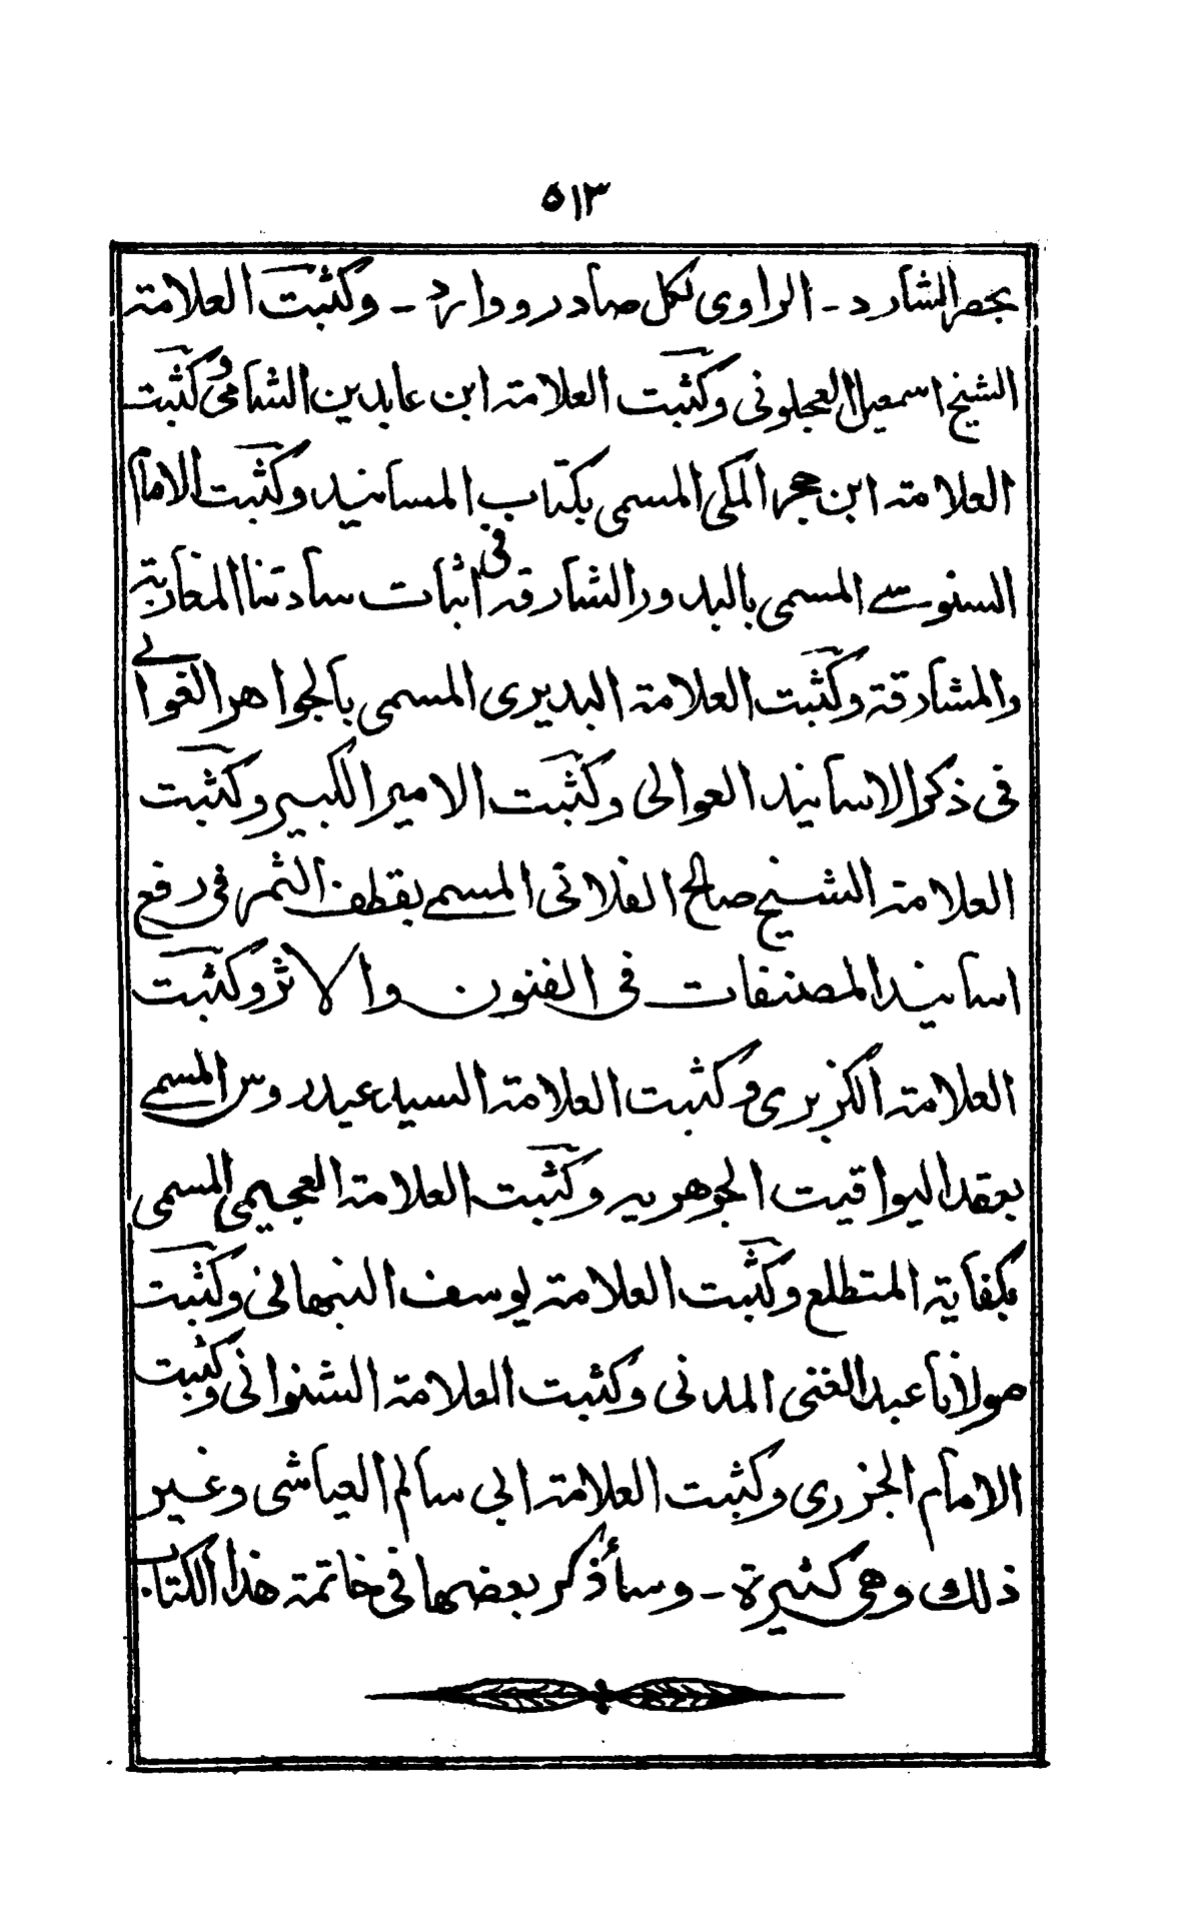 ٥١٣
بحصر الشارد - الراوى لكل صادر و وارد - وكثبت العلامة
الشيخ اسمعيل العجلونى وكثبت العلامة ابن عابدين الشامى وكثبت
العلامة ابن حجر المكى المسمى بكتاب المسانيد وكثبت الامام
السنوسى المسمى بالبدور الشارقة فى اثبات سادتنا المغاربة
والمشارقة وكثبت العلامة البديرى المسمى بالجواهر الغوالى
فى ذكر الاسانيد العوالى وكثبت الامير الكبير وكثبت
العلامة الشيخ صالح الفلانى المسمى بقطف الثمر فى رفع
اسانيد المصنفات فى الفنون والاثر وكثبت
العلامة الكزبرى وكثبت العلامة السيد عيدروس المسمى
بعقد اليواقيت الجوهريه وكثبت العلامة العجيمى المسمى
بكفاية المتطلع وكثبت العلامة يوسف النبهانى وكثبت
مولانا عبد الغنى المدنى وكثبت العلامة الشنوانى وكثبت
الامام الجزرى وكثبت العلامة ابى سالم العياشى وغير
ذلك وهى كثيرة - وسأذكر بعضها فى خاتمة هذا الكتاب.